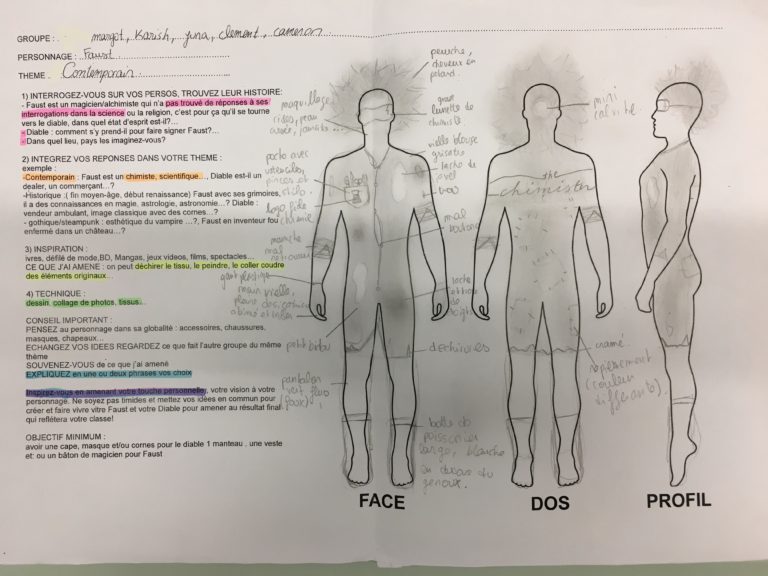 GROUPE : margot, Karish, yuna, clement, cameron
PERSONNAGE : Faust
THEME : Contemporain
1) INTERROGEZ-VOUS SUR VOS PERSOS, TROUVEZ LEUR HISTOIRE:
- Faust est un magicien/alchimiste qui n'a pas trouvé de réponses à ses
interrogations dans la science ou la religion, c'est pour ça qu'il se tourne
vers le diable, dans quel état d'esprit est-il?…
- Diable : comment s'y prend-il pour faire signer Faust?…
- Dans quel lieu, pays les imaginez-vous?
2) INTEGREZ VOS REPONSES DANS VOTRE THEME :
exemple :
-Contemporain : Faust est un chimiste, scientifique…, Diable est-il un
dealer, un commerçant…?
-Historique :( fin moyen-âge, début renaissance) Faust avec ses grimoires,
il a des connaissances en magie, astrologie, astronomie…? Diable :
vendeur ambulant, image classique avec des cornes…?
- gothique/steampunk : esthétique du vampire …?, Faust en inventeur fou
enfermé dans un château…?
3) INSPIRATION :
ivres, défilé de mode,BD, Mangas, jeux videos, films, spectacles…
CE QUE J'AI AMENE : on peut déchirer le tissu, le peindre, le coller coudre
des éléments originaux…
4) TECHNIQUE :
dessin, collage de photos, tissus…
CONSEIL IMPORTANT :
PENSEZ au personnage dans sa globalité : accessoires, chaussures,
masques, chapeaux…
ECHANGEZ VOS IDEES REGARDEZ ce que fait l'autre groupe du même
thème
SOUVENEZ-VOUS de ce que j'ai amené
EXPLIQUEZ en une ou deux phrases vos choix
Inspirez-vous en amenant votre touche personnelle, votre vision à votre
personnage. Ne soyez pas timides et mettez vos idées en commun pour
créer et faire vivre vitre Faust et votre Diable pour amener au résultat final
qui reflétera votre classe!
OBJECTIF MINIMUM :
avoir une cape, masque et/ou cornes pour le diable 1 manteau , une veste
et: ou un bâton de magicien pour Faust
perruche,
cheveux en
pétard.
maquillage
rides, peau
grosse
lunette de
chimiste
vielle blouse
poche avec
stylo
tache de
javel
trou
logo fiole
chimie
mal
boutonné
manche
mal
retroussée
gant plastique
main vielle
petit bidou
dechirures
pantalon
vert fluo
botte de
poissonier
large, blanche
en dessous du
genoux.
mini
calvitie
the
chimister
cramé
rapiècement
(couleur
differente)
FACE
DOS
PROFIL